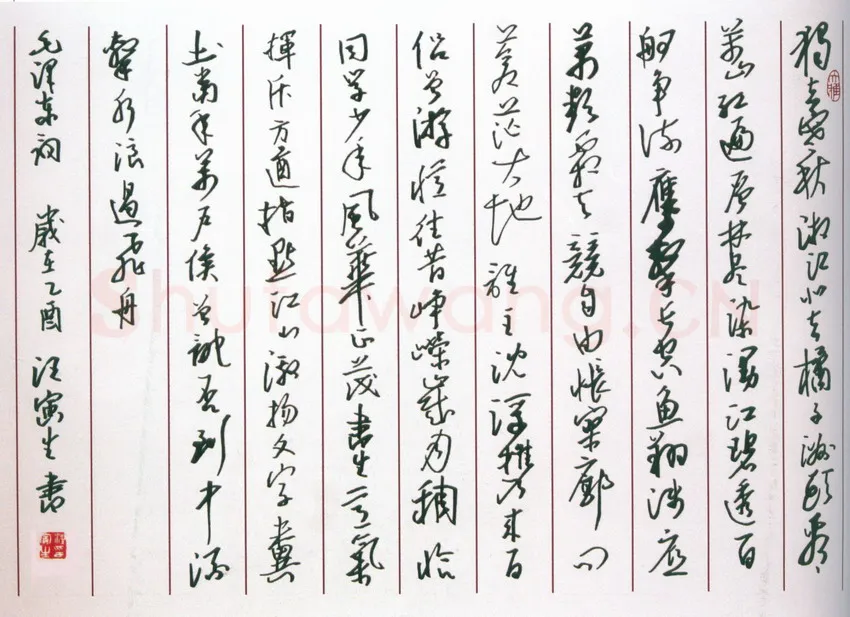 獨立寒秋湘江北去橘子洲頭看
萬山红遍层林尽染漫江碧透百
舸争流鷹擊长空鱼翔浅底
萬類霜天競自由怅寥廓问
蒼茫大地誰主沈浮携来百
侣曾游忆往昔峥嵘岁月稠恰
同学少年風華正茂書生意氣
揮斥方遒指點江山激扬文字糞
土當年萬户侯曾记否到中流
擊水浪遏飞舟
毛澤东詞 歲在乙酉 汪寅生書
Shufawang.CN